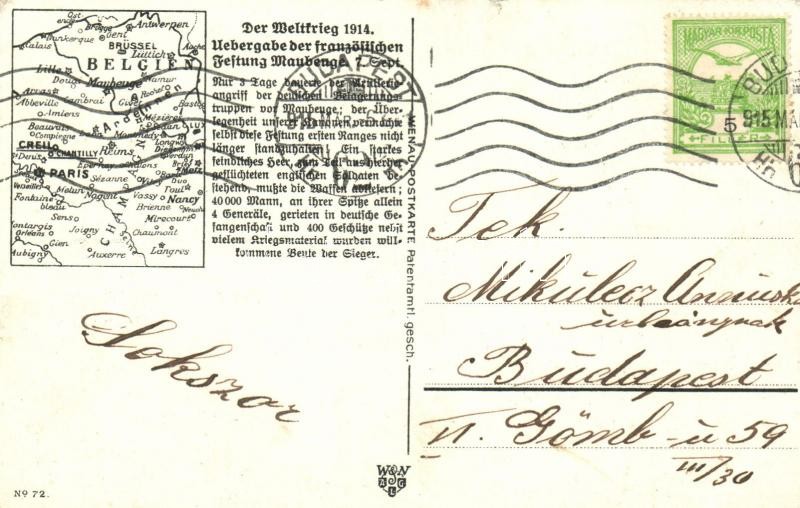 Der Weltkrieg 1914.
Uebergabe der französischen
Festung Maubeuge 7. Sept.
Nur 3 Tage dauerte der Artillerie-
angriff der deutschen Belagerungs-
truppen vor Maubeuge; der Über-
legenheit unserer Kanonen vermochte
selbst diese Festung ersten Ranges nicht
länger standzuhalten. Ein starkes
feindliches Heer, zum Teil aus hierher
geflüchteten englischen Soldaten be-
stehend, mußte die Waffen abliefern;
40000 Mann, an ihrer Spitze allein
4 Generäle, gerieten in deutsche Ge-
fangenschaft und 400 Geschütze nebst
vielem Kriegsmaterial wurden will-
kommene Beute der Sieger.
Antwerpen
Brügge
Gent
Dunkerque
Calais
BRÜSSEL
Lüttich
BELGIEN
Lille
Douai
Maubeuge
Namur
Arras
Abbeville
Cambrai
Givet
Amiens
Ardennen
Mézières
Beauvais
Compiègne
CREIL
CHANTILLY
Reims
St Denis
PARIS
Sézanne
Melun
Nogent
Vassy
Toul
Nancy
Fontaine-
bleau
Brienne
Mirecourt
Sens
Joigny
Chaumont
Orléans
Gien
Auxerre
Langres
Aubigny
CHAMPAGNE
Seine
BUDAPEST
MENAU-POSTKARTE Patentamtl. gesch.
MAGYAR KIR. POSTA
5
FILLER
5
915 MA
Sokszor
Tek.
Mikulecz
urleánynak
Budapest
VI. Gömb-u 59
III/30
W&N
No 72.